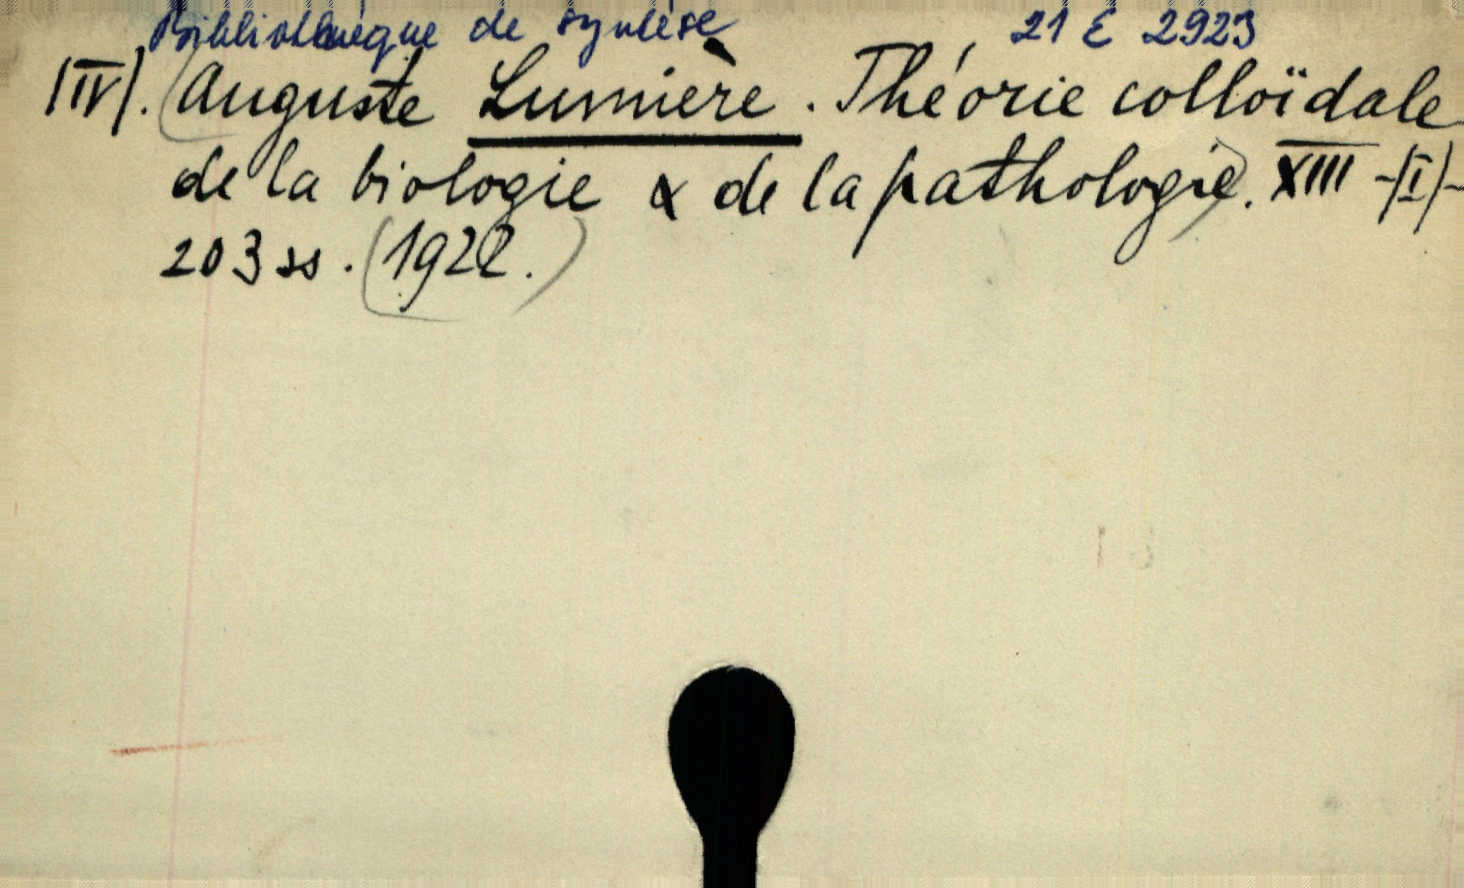 Bibliothèque de syntèse 21 E 2923
(IV). (Auguste Lumière. Théorie colloïdale
de la biologie & de la pathologie). XIII -(I)-
203 ss. (1922.)